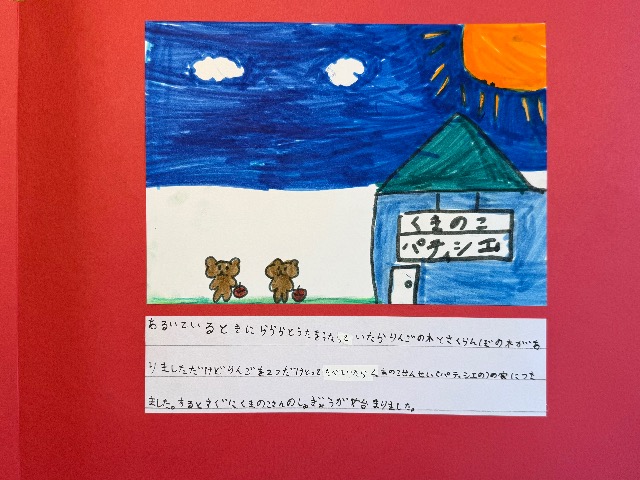 くまのこ
パティシエ
あるいているときにららららとうたをうたっていたからりんごの木とさくらんぼの木があ
りましただけどりんごを2つだけとって くまのこせんせい(パティシエの)の家につき
ました。するとすぐにくまのこさんのしゅぎょうが始まりました。